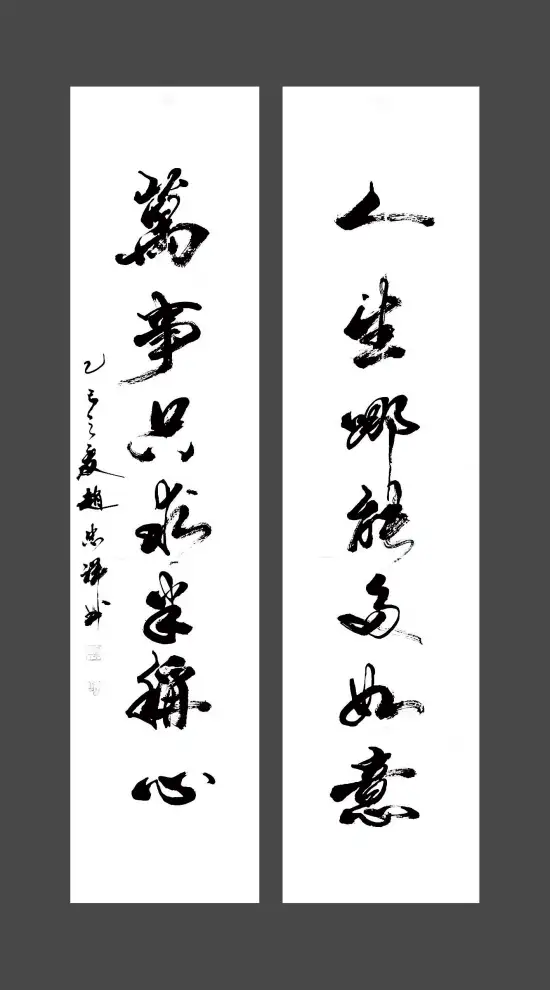 人生哪能多如意
萬事只求半稱心
乙巳之夏趙忠祥书